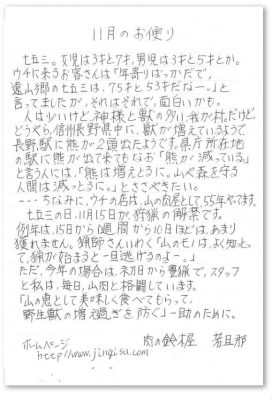 11月のお便り
七五三。女児は3才と7才、男児は3才と5才とか。
ウチに来るお客さんは「年寄りばっかだで、
遠山郷の七五三は、75才と53才だなー。」と
言ってましたが、それはそれで、面白いかも。
人は少いけど神様と獣の多い我が村。だけど、
どうやら信州長野県中に、獣が増えているようで
長野駅に熊が2頭出たようです。県庁所在地
の駅に熊が出て来てもなお「熊が減っている」
と言う人には、「熊は増えとるに。山や森を守る
人間は減っとるに。」とささやきたい。
---ちなみに、ウチの店は、山の肉屋として55年やってます。
七五三の日、11月15日が狩猟の解禁です。
例年は、15日から1週間から10日ほどは、あまり
獲れません。猟師さんいわく「山のモノは、よく知っと
って、猟が始まると一旦逃げるのよー。」
ただ、今年の場合は、初日から豊猟で、スタッフ
と私は、毎日、山肉と格闘しています。
「山の恵として美味しく食べてもらって、
野生獣の増え過ぎを防ぐ」一助のために。
ホームページ 肉の鈴木屋 若旦那
http://www.jingisu.com/